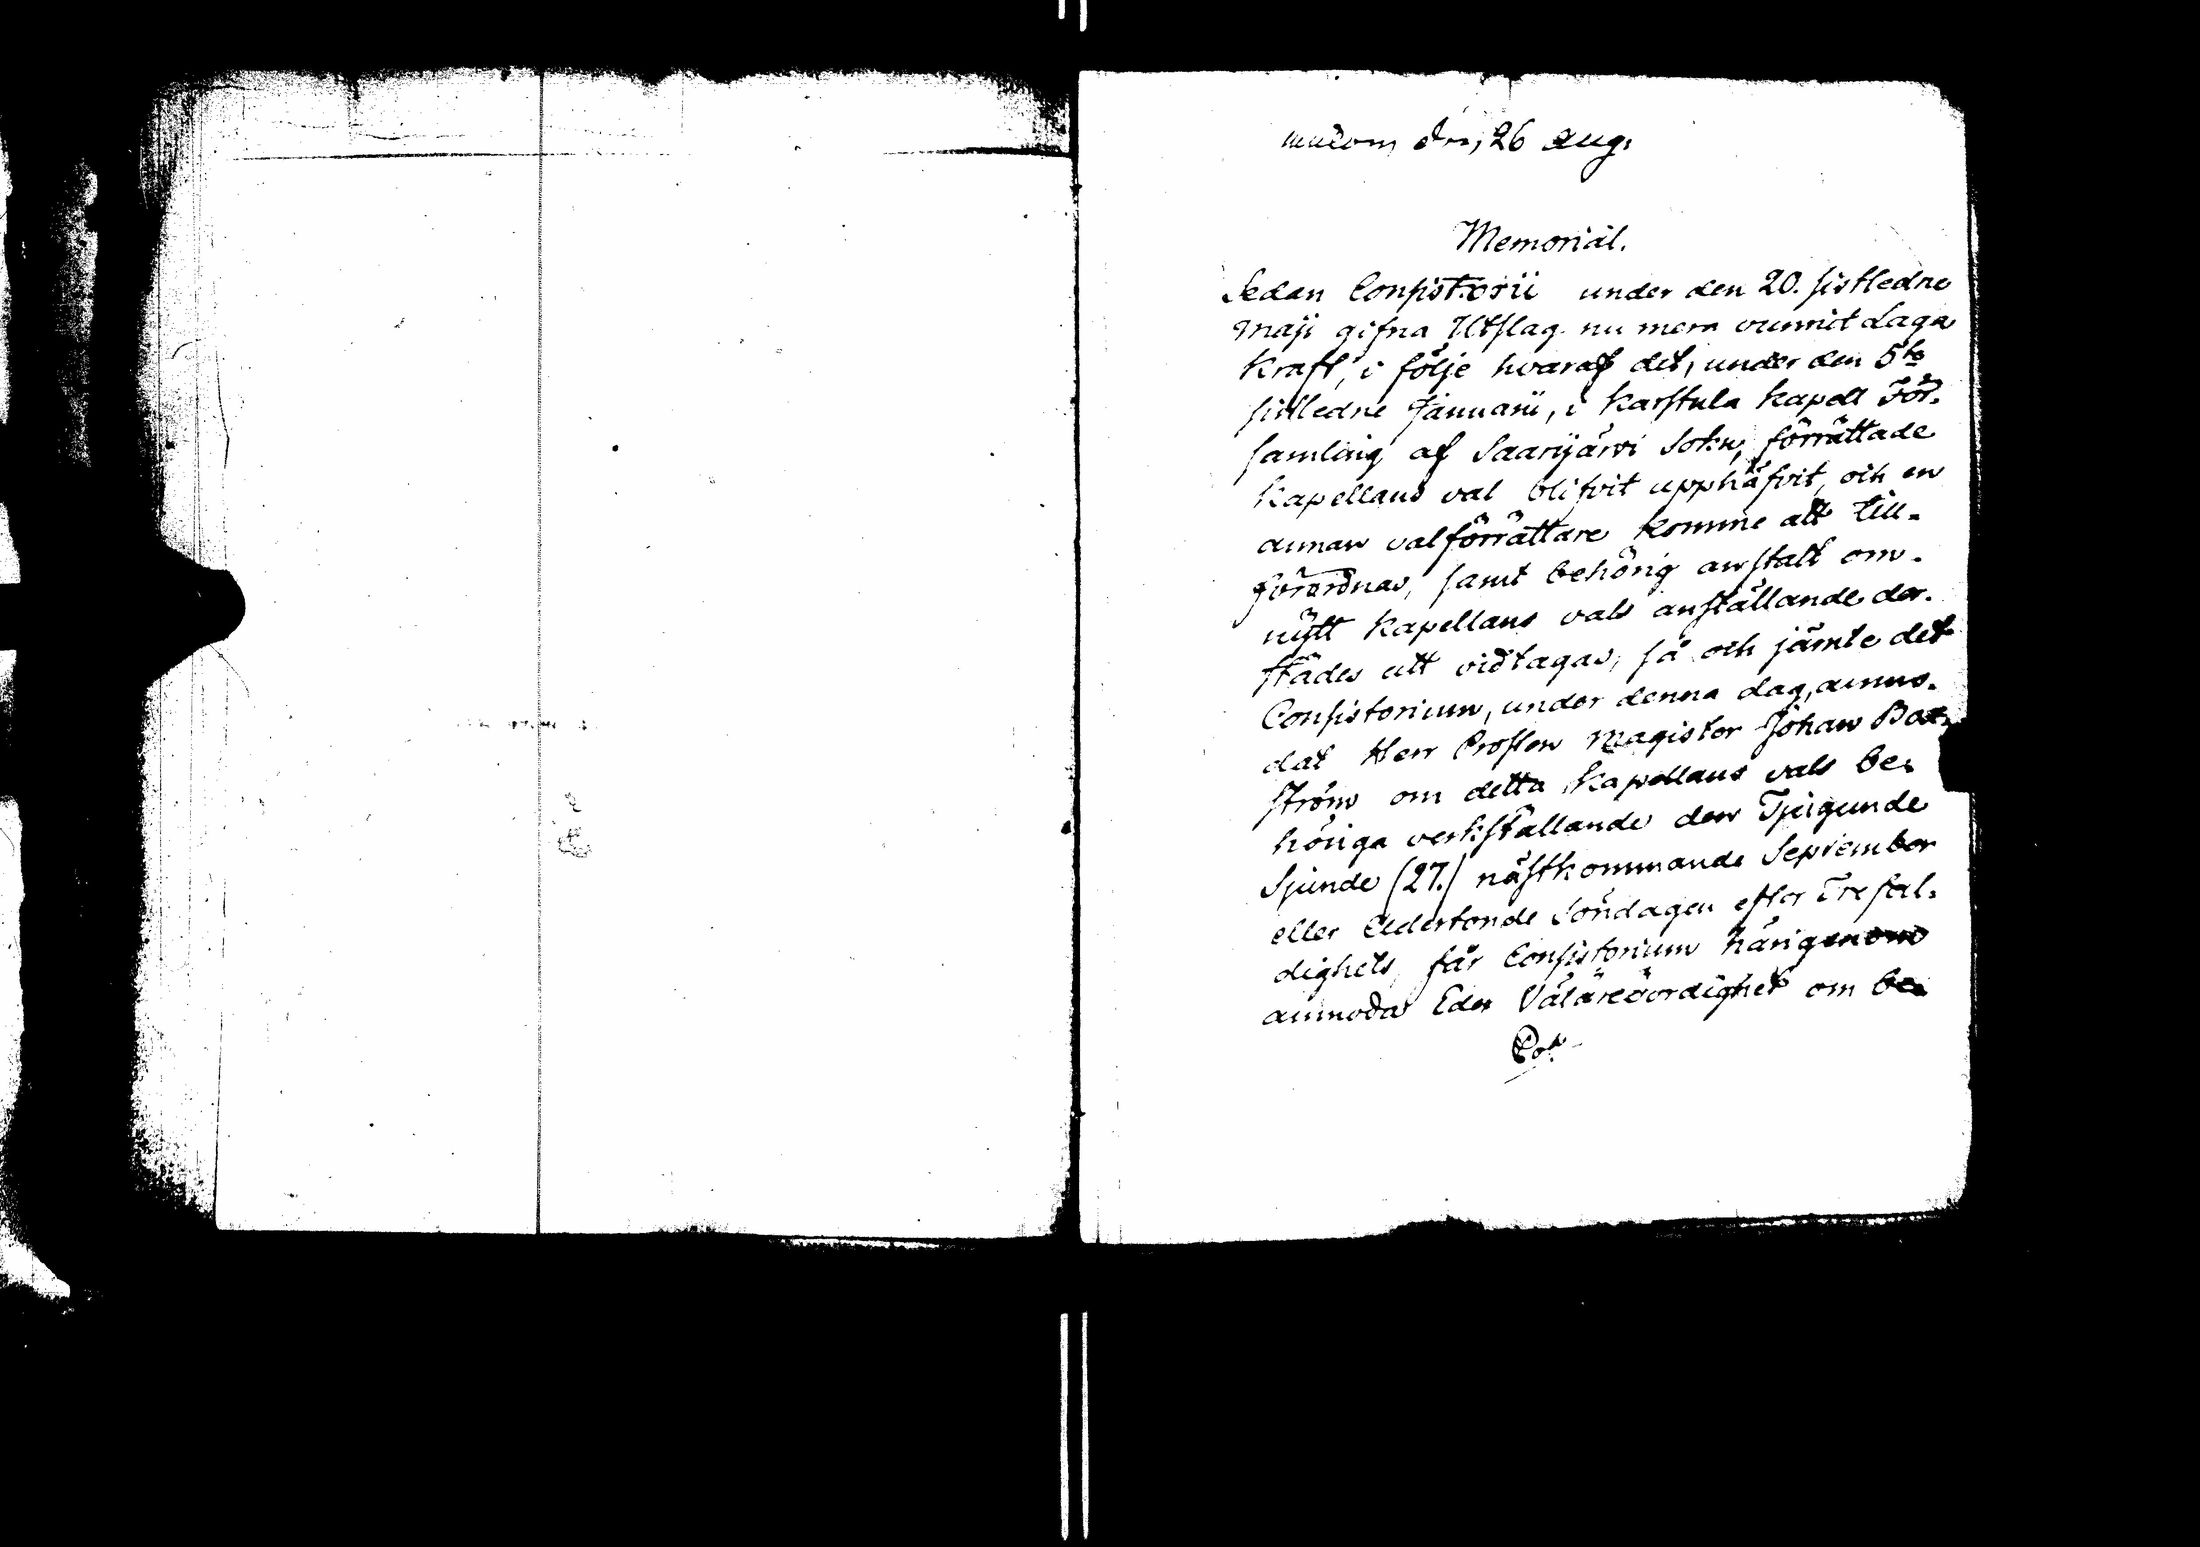 den 26 aug.
Memorial.
Sedan Consistorii under den 20. sistledne
Maji gifna Utslag nu mera vunnit Laga
kraft, i följe hvaraf det, under den 5te
sistledne Januarii, i Karstula kapell För-
samling af Saarijärvi Sokn, förrättade
kapellans val blifvit upphäfvit, och en
annan valförrättare komme att till-
förordnas, samt behörig anstalt om
nytt kapellans vals anställande der-
städes att vidtagas, så och jämte det
Consistorium, under denna dag, anmo-
dat Herr Prosten Magister Johan Bo
ström om detta kapellans vals be-
höriga verkställande den Tjugunde
Sjunde (27.) nästkommande September
eller Adertonde Söndagen efter Trefal-
dighets, får Consistorium härigenom
anmoda Eder Välärevördighet om be-